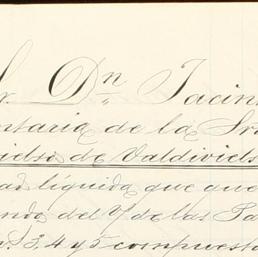 Sr. Dn Jacin
entaria de la Sra
ielso de Valdiviels
dad líquida que que
ando del 7 de las Pa
3 4 y 5 compuesta